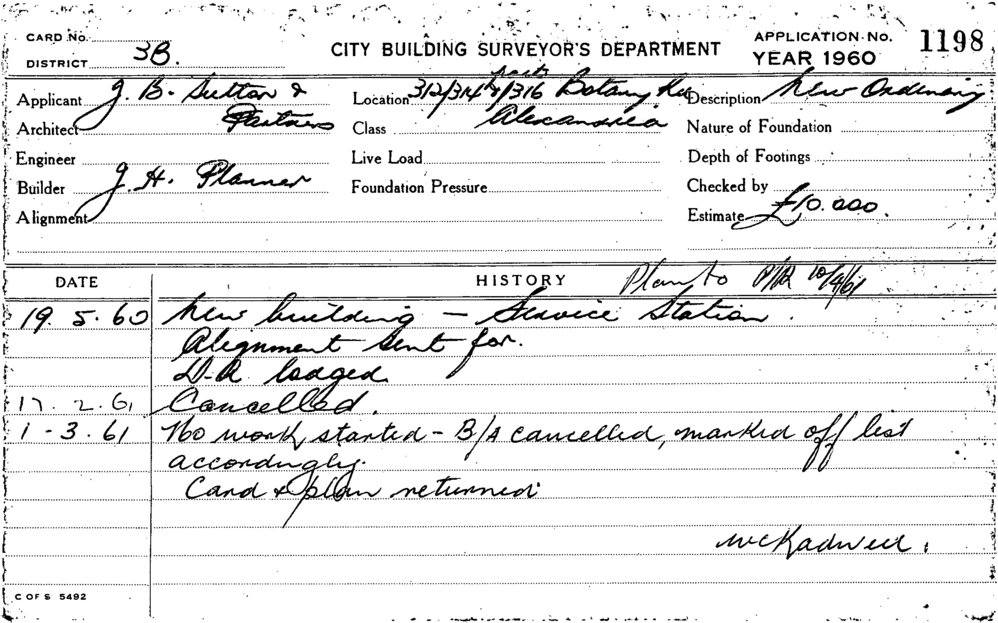 CARD No.
DISTRICT 3B.
CITY BUILDING SURVEYOR'S DEPARTMENT
APPLICATION No. 1198
YEAR 1960
Applicant J. B. Sutton &
Architect Partners
Engineer
Builder J. H. Planner
Alignment
parts
Location 312/314 & /316 Botany Rd
Class Alexandria
Live Load
Foundation Pressure
Description New Ordinary
Nature of Foundation
Depth of Footings
Checked by
Estimate £10.000.
DATE HISTORY Plan to P/R 10/4/61
19. 5. 60 New building — Service Station.
Alignment sent for.
D.A. lodged.
17. 2. 61 Cancelled.
1 - 3. 61 No work started - B/A cancelled, marked off list
accordingly.
Card & plan returned
C OF S 5492